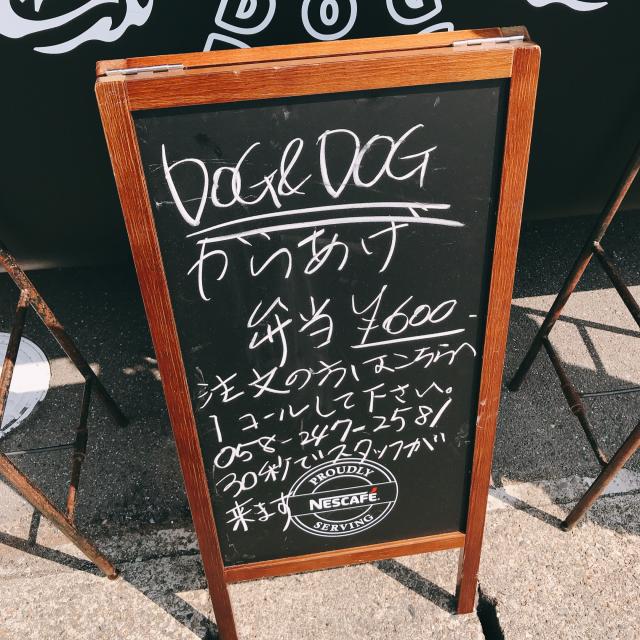 DOG
DOG&DOG
からあげ
弁当 ¥600-
注文の方はこちらへ
1コールして下さい。
058-247-2581
30秒でスタッフが
来ます
PROUDLY
NESCAFÉ
SERVING